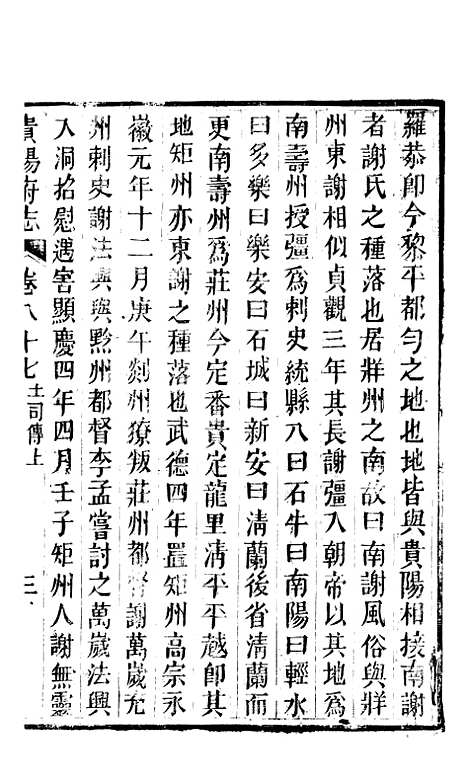 羅恭卽今黎平都勻之地也地皆與貴陽相接南謝
者謝氏之種落也居牂州之南故曰南謝風俗與牂
州東謝相似貞觀三年其長謝彊入朝帝以其地爲
南壽州授彊爲刺史統縣八曰石牛曰南陽曰輕水
曰多樂曰樂安曰石城曰新安曰淸蘭後省淸蘭而
更南壽州爲莊州今定番貴定龍里淸平平越卽其
地矩州亦東謝之種落也武德四年置矩州高宗永
徽元年十二月庚午剡州獠叛莊州都督謝萬歲充
州刺史謝法興與黔州都督李孟嘗討之萬歲法興
入洞招慰遇害顯慶四年四月壬子矩州人謝無靈
貴陽府志 卷八十七 土司傳上 三